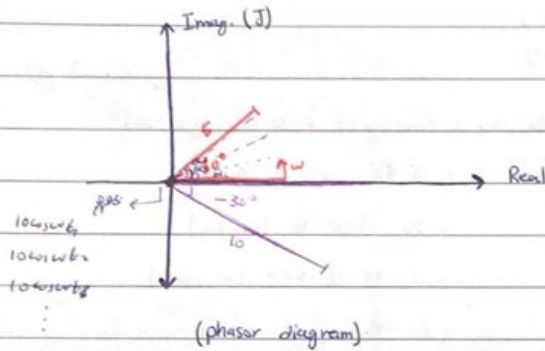 Imag. (J)
5
30°
ω
Real
-30°
10
10 cos ωt₁
10 cos ωt₂
10 cos ωt₃
⋮
(phasor diagram)